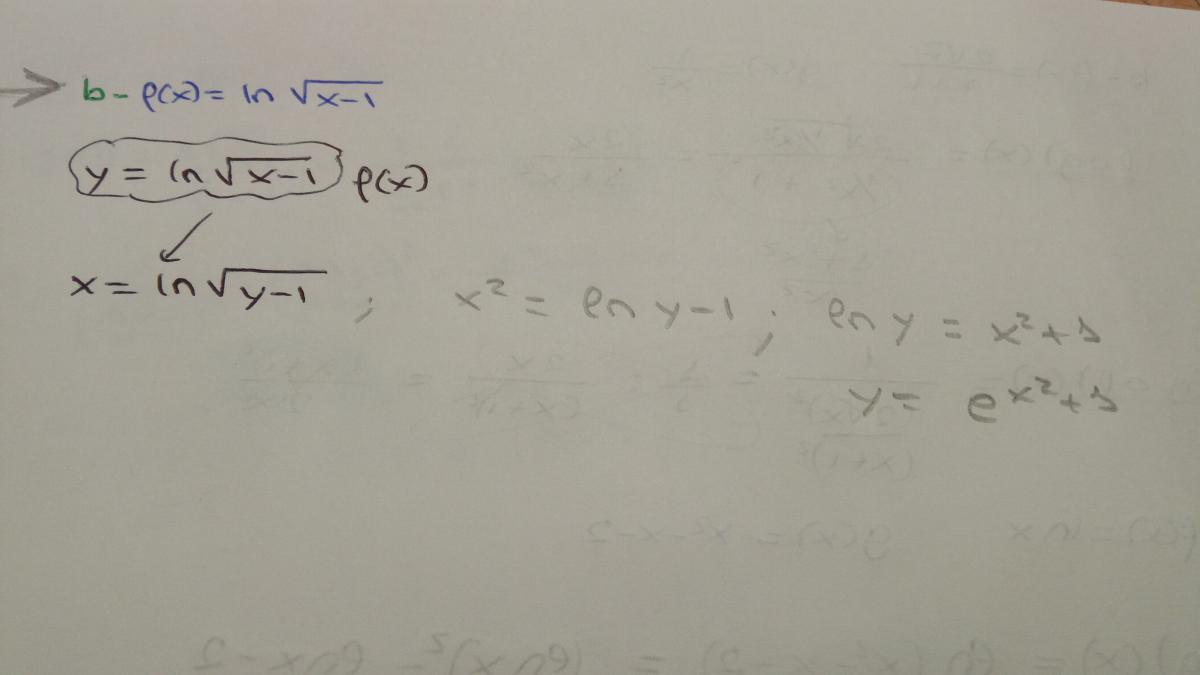 b - f(x) = ln √(x-1)
y = ln √(x-1) f(x)
x = ln √(y-1) ; x² = ln y-1 ; ln y = x²+1
y = e^(x²+1)